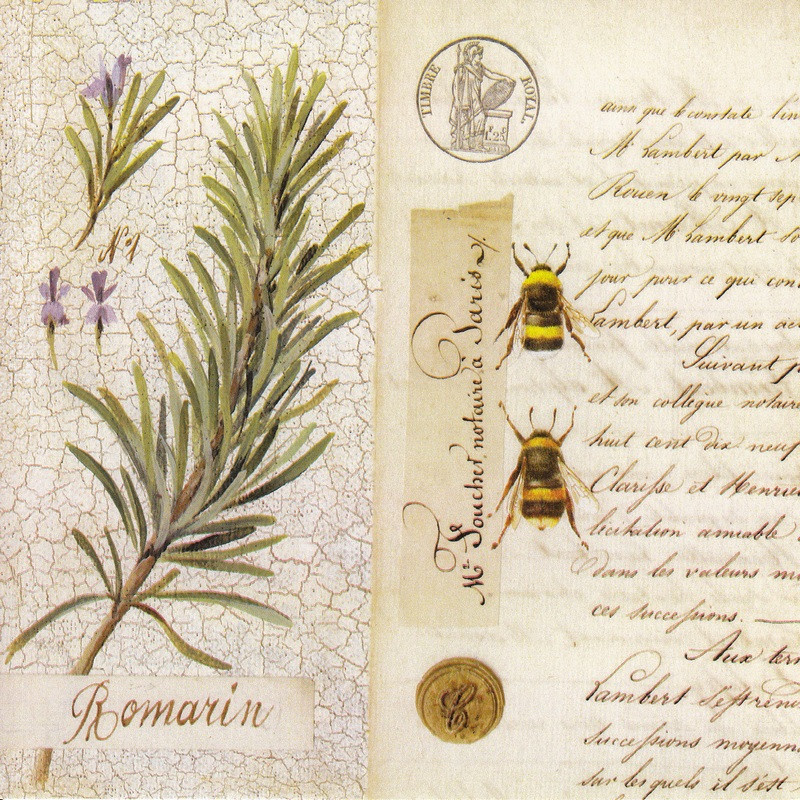 Nº1
Romarin
TIMBRE ROYAL.
1.25
Mr. Foucher notaire à Paris
ainsi que le constate l'in
Mr Lambert par
Rouen le vingt sep
et que Mr Lambert
jour pour ce qui con
Lambert, par un ac
Suivant p
et son collègue notaire
huit cent dix neuf
Clarisse et Henrie
licitation amiable
dans les valeurs m
ces successions.
Aux ter
Lambert
successions moyenn
sur lesquels il s'est